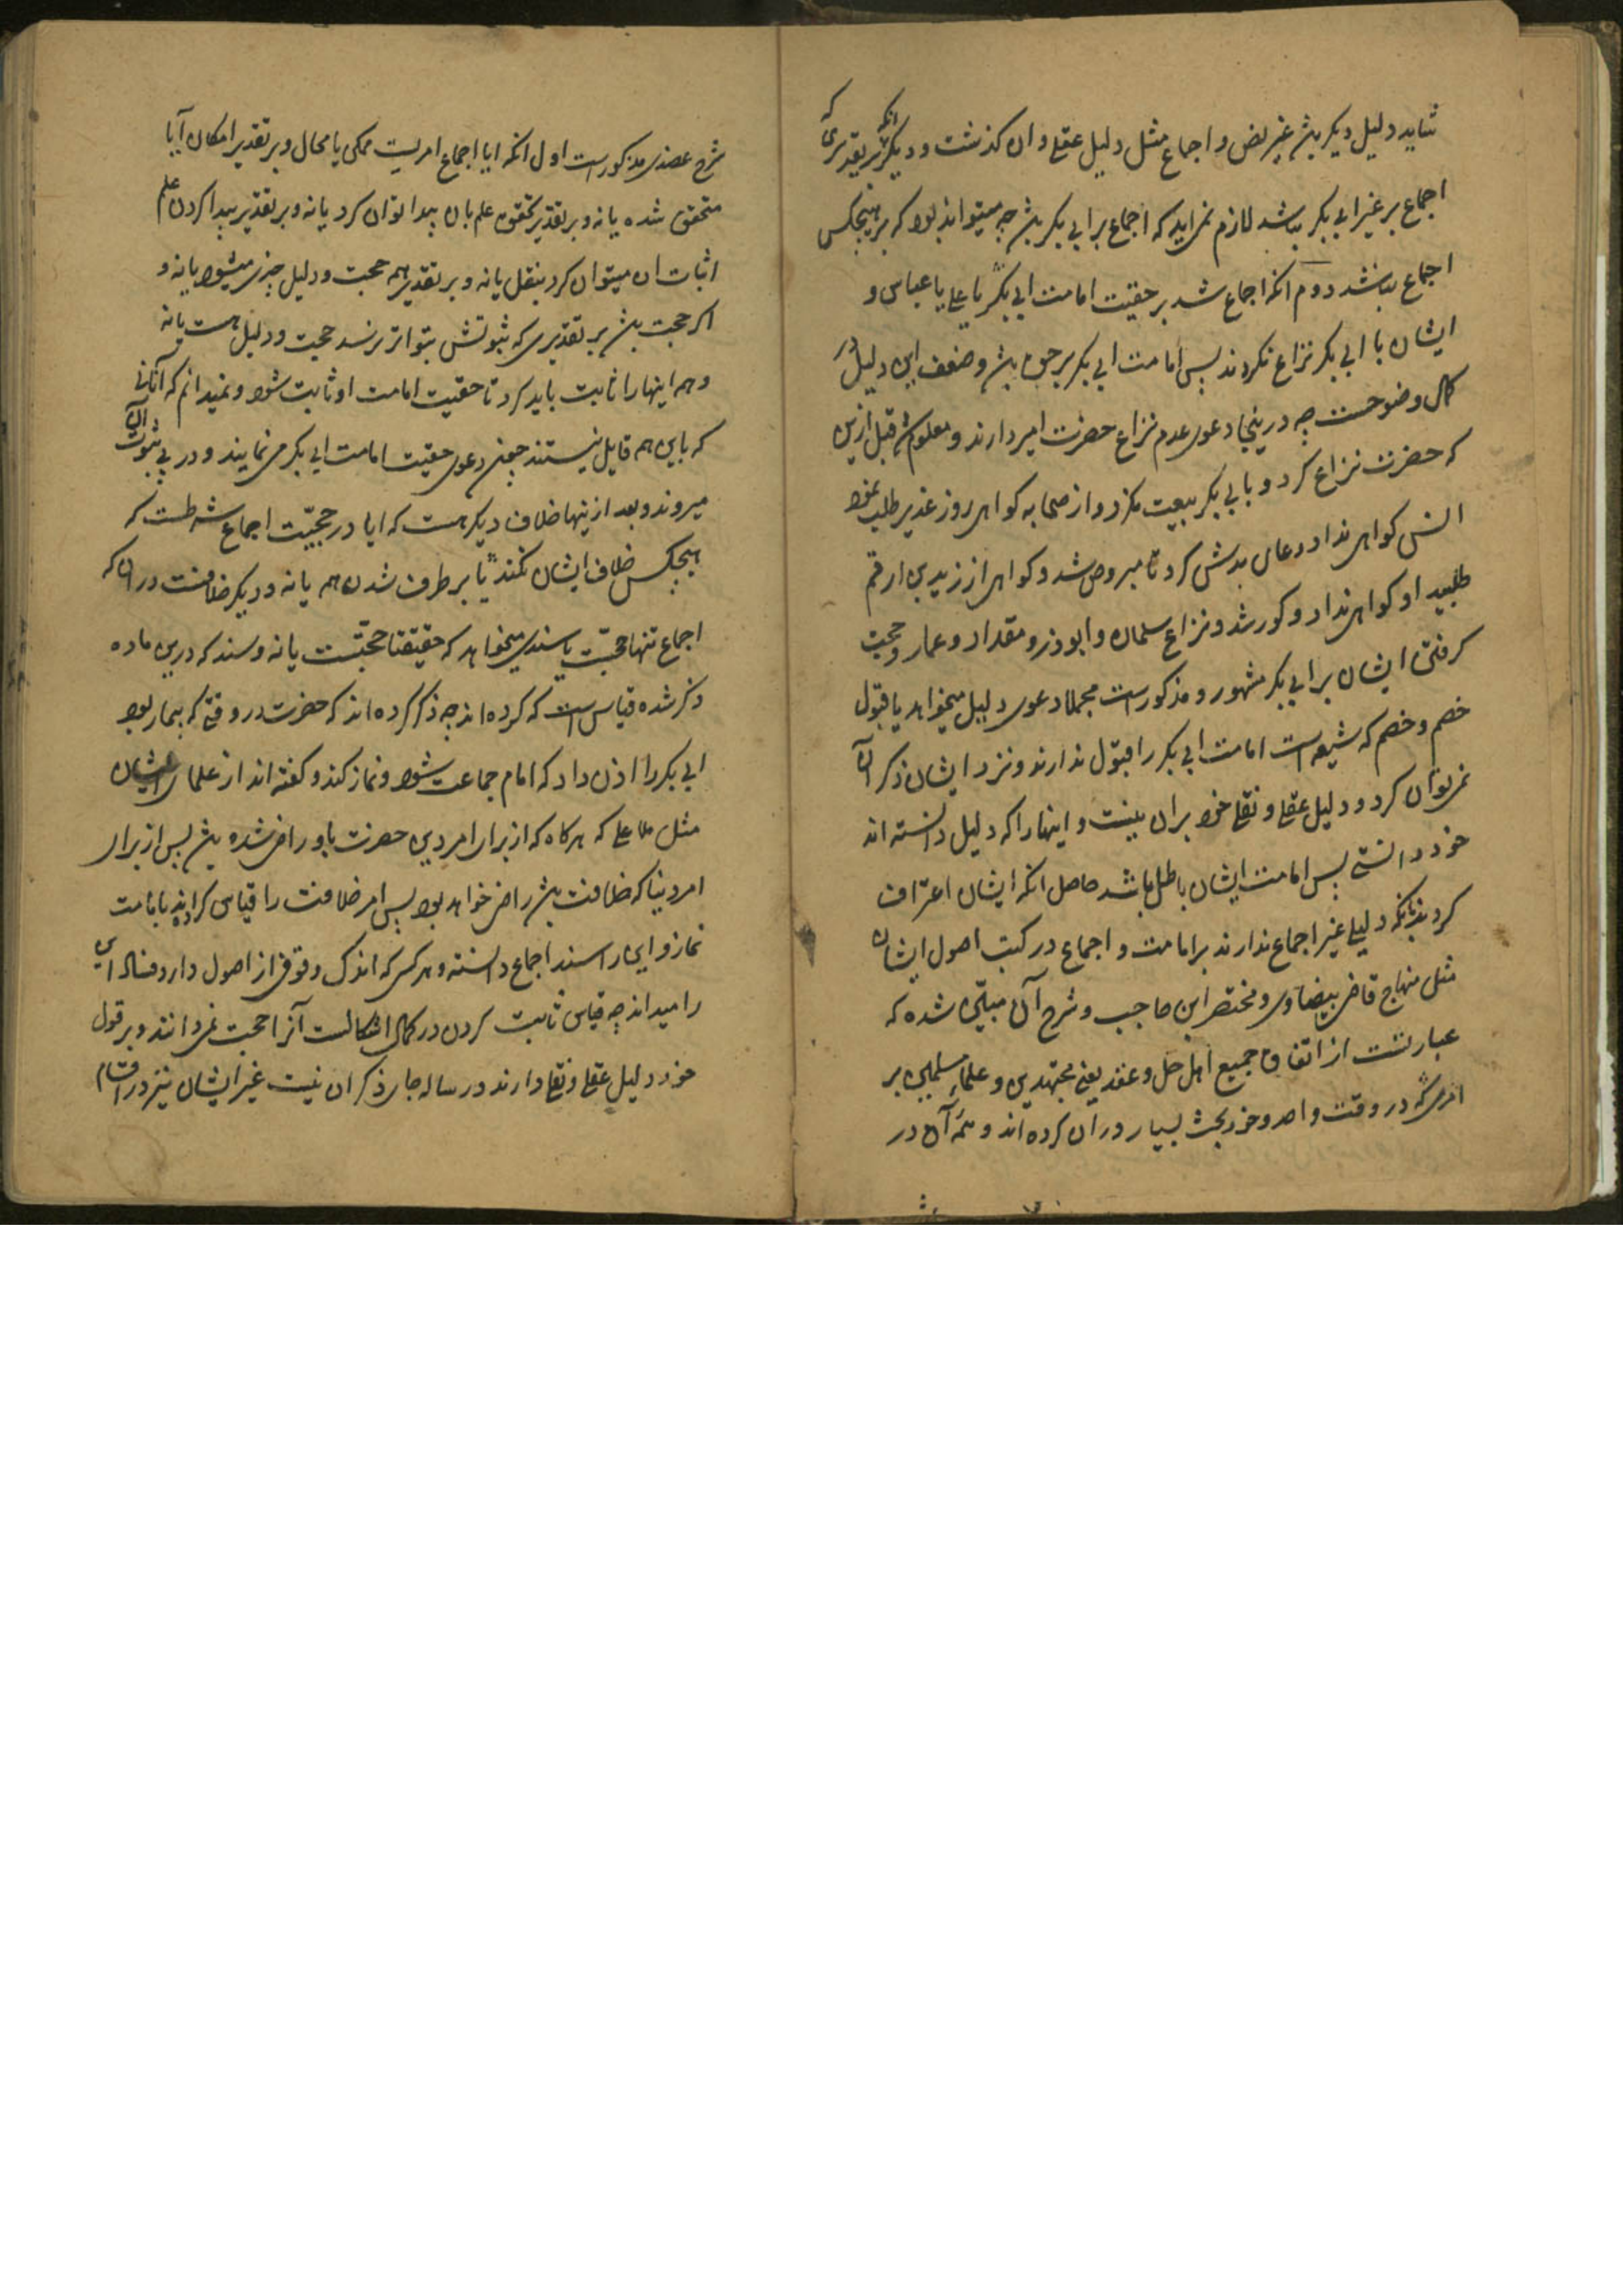 شاید دلیل دیکر باشد غیر نص و اجماع مثل دلیل عقلی و ان کذشت و دیکر انکه بر تقدیری که
اجماع بر غیر ابی بکر نباشد لازم نمی اید که اجماع بر ابی بکر باشد چه میتواند بود که بر هیچکس
اجماع نباشد دوم انکه اجماع شد بر حقیت امامت ابی بکر یا علی یا عباس و
ایشان با ابی بکر نزاع نکردند پس امامت ابی بکر بر حق باشد و ضعف این دلیل در
کمال وضوحست چه درینجا دعوی عدم نزاع حضرت امیر دارند و معلوم شد قبل ازین
که حضرت نزاع کرد و با ابی بکر بیعت نکرد و از صحابه کواهی روز غدیر طلب نمود
انس کواهی نداد دعای بدش کرد تا مبروص شد و کواهی از زید بن ارقم
طلبید او کواهی نداد و کور شد و نزاع سلمان و ابوذر و مقداد و عمار و حجت
کرفتن ایشان بر ابی بکر مشهور و مذکورست مجملا دعوی دلیل میخواهد یا قبول
خصم و خصم که شیعه است امامت ابی بکر را قبول ندارند و نزد ایشان ذکر ان
نمی توان کرد و دلیل عقلی و نقلی خود بران نیست و اینها را که دلیل دانسته اند
خود دانستی پس امامت ایشان باطل باشد حاصل انکه ایشان اعتراف
کردند بانکه دلیلی غیر اجماع ندارند بر امامت و اجماع در کتب اصول ایشان
مثل منهاج قاضی بیضاوی و مختصر ابن حاجب و شرح آن مبین شده که
عبارتست از اتفاق جمیع اهل حل و عقد یعنی مجتهدین و علماء مسلمین بر
امری که در وقت واحد و خود بحث بسیار دران کرده اند و همه آن در
شرح عضدی مذکورست اول انکه ایا اجماع امریست ممکن یا محال و بر تقدیر امکان آیا
متحقق شده یا نه و بر تقدیر تحقق علم بان پیدا توان کرد یا نه و بر تقدیر پیدا کردن علم
اثبات ان میتوان کرد بنقل یا نه و بر تقدیر همه حجت و دلیل چیزی میشود یا نه و
اکر حجت باشد بر تقدیری که ثبوتش بتواتر نرسد حجت و دلیل هست یا نه
و همه اینها را ثابت باید کرد تا حقیت امامت او ثابت شود و نمیدانم که آنانی
که باین هم قایل نیستند چون دعوی حقیت امامت ابی بکر می نمایند و در پی ثبوت آن
میروند و بعد از ینها خلاف دیکر هست که ایا در حجیّت اجماع شرطست که
هیچکس خلاف ایشان نکند تا بر طرف شدن هم یا نه و دیکر خلافست دران که
اجماع تنها حجّت یا سندی میخواهد که حقیقتا حجّتست یا نه و سند که درین ماده
ذکر شده قیاس است که کرده اند چه ذکر کرده اند که حضرت در وقتی که بیمار بود
ابی بکر را اذن داد که امام جماعت شود و نماز کند و کفته اند از علمای ایشان
مثل ملا علی که هرکاه که از برای امر دین حضرت باو راضی شده باشد پس از برای
امر دنیا که خلافت باشد راضی خواهد بود پس امر خلافت را قیاس کرده اند بامامت
نماز و این را سند اجماع دانسته و هر کس که اندک وقوفی از اصول دارد فساد این
را میداند چه قیاس ثابت کردن در کمال اشکالست آنرا حجت نمی دانند و بر قول
خود دلیل عقلی و نقلی دارند در رساله جای ذکر ان نیست غیر ایشان نیز در اقسام